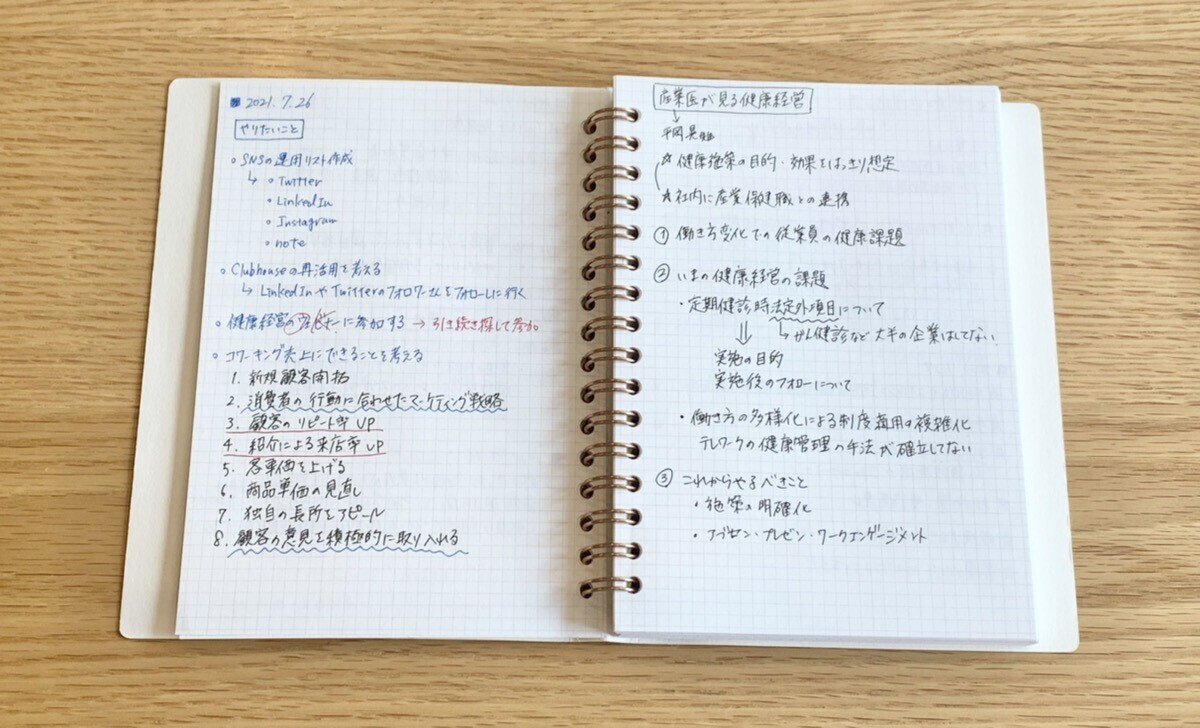 2021.7.26
やりたいこと
○ SNSの運用リスト作成
↳ ○ Twitter
○ LinkedIn
○ Instagram
○ note
○ Clubhouseの再活用を考える
↳ LinkedInやTwitterのフォロワーさんをフォローしに行く
○ 健康経営のセミナーに参加する → 引き続き探して参加
○ コワーキング売上にできることを考える
1. 新規顧客開拓
2. 消費者の行動に合わせたマーケティング戦略
3. 顧客のリピート率UP
4. 紹介による来店率UP
5. 客単価を上げる
6. 商品単価の見直し
7. 独自の長所をアピール
8. 顧客の意見を積極的に取り入れる
産業医が見る健康経営
↓
平岡
☆ 健康施策の目的・効果をはっきり想定
☆ 社内に産業保健職との連携
① 働き方変化での従業員の健康課題
② いまの健康経営の課題
・定期健診時法定外項目について
⇓ ↳ がん健診など大半の企業はしてない
実施の目的
実施後のフォローについて
・働き方の多様化による制度適用の複雑化
テレワークの健康管理の手法が確立してない
③ これからやるべきこと
・施策の明確化
・アブセン・プレゼン・ワークエンゲージメント